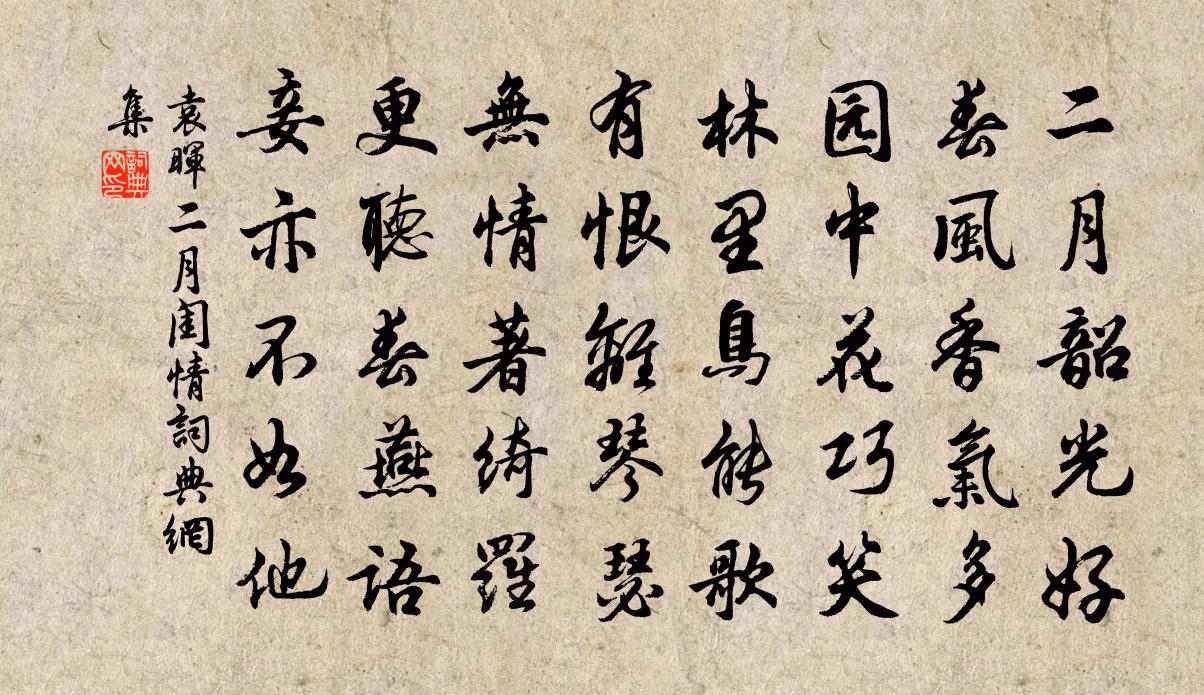 二月韶光好
春風香氣多
园中花巧笑
林里鳥能歌
有恨離琴瑟
無情著綺羅
更聽春燕語
妾亦不如他
袁暉二月閨情詞典網
集
詞典
网印